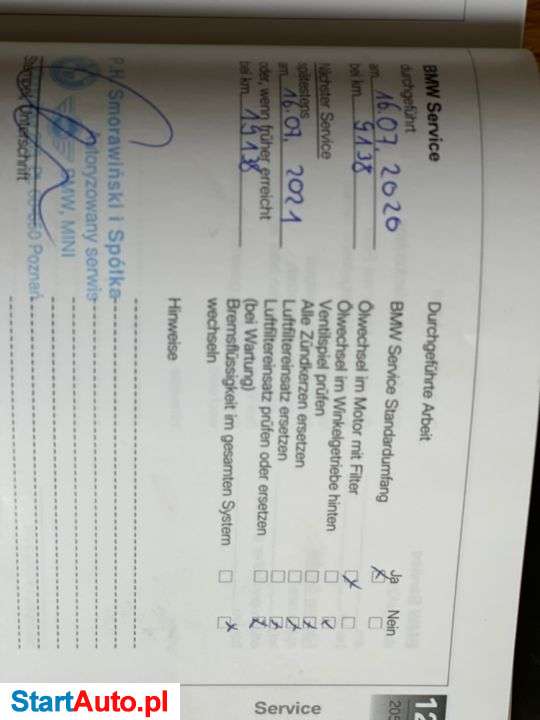 BMW Service
durchgeführt
am 16.07.2020
bei km 9138
Nächster Service
spätestens
am 16.07.2021
oder, wenn früher erreicht
bei km 19138
P.H. Smorawiński i Spółka
Autoryzowany serwis
BMW, MINI
Poznań
Stempel, Unterschrift
Durchgeführte Arbeit
Ja Nein
BMW Service Standardumfang
Ölwechsel im Motor mit Filter
Ölwechsel im Winkelgetriebe hinten
Ventilspiel prüfen
Alle Zündkerzen ersetzen
Luftfiltereinsatz ersetzen
Luftfiltereinsatz prüfen oder ersetzen
(bei Wartung)
Bremsflüssigkeit im gesamten System
wechseln
Hinweise
Service
StartAuto.pl